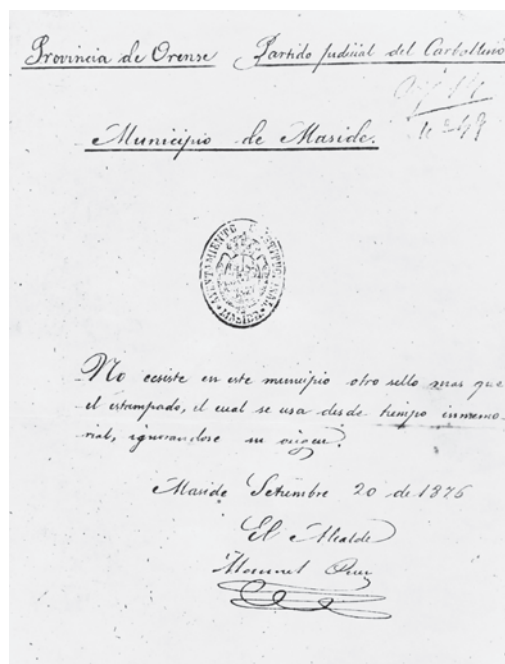 Provincia de Orense Partido judicial del Carballino
nº 49
Municipio de Maside.
AYUNTAMIENTO CONSTITUCIONAL
MASIDE
No ecsiste en este municipio otro sello mas que
el estampado, el cual se usa desde tiempo inmemo-
rial, ignorandose su origen.
Maside Setiembre 20 de 1876
El Alcalde
Manuel